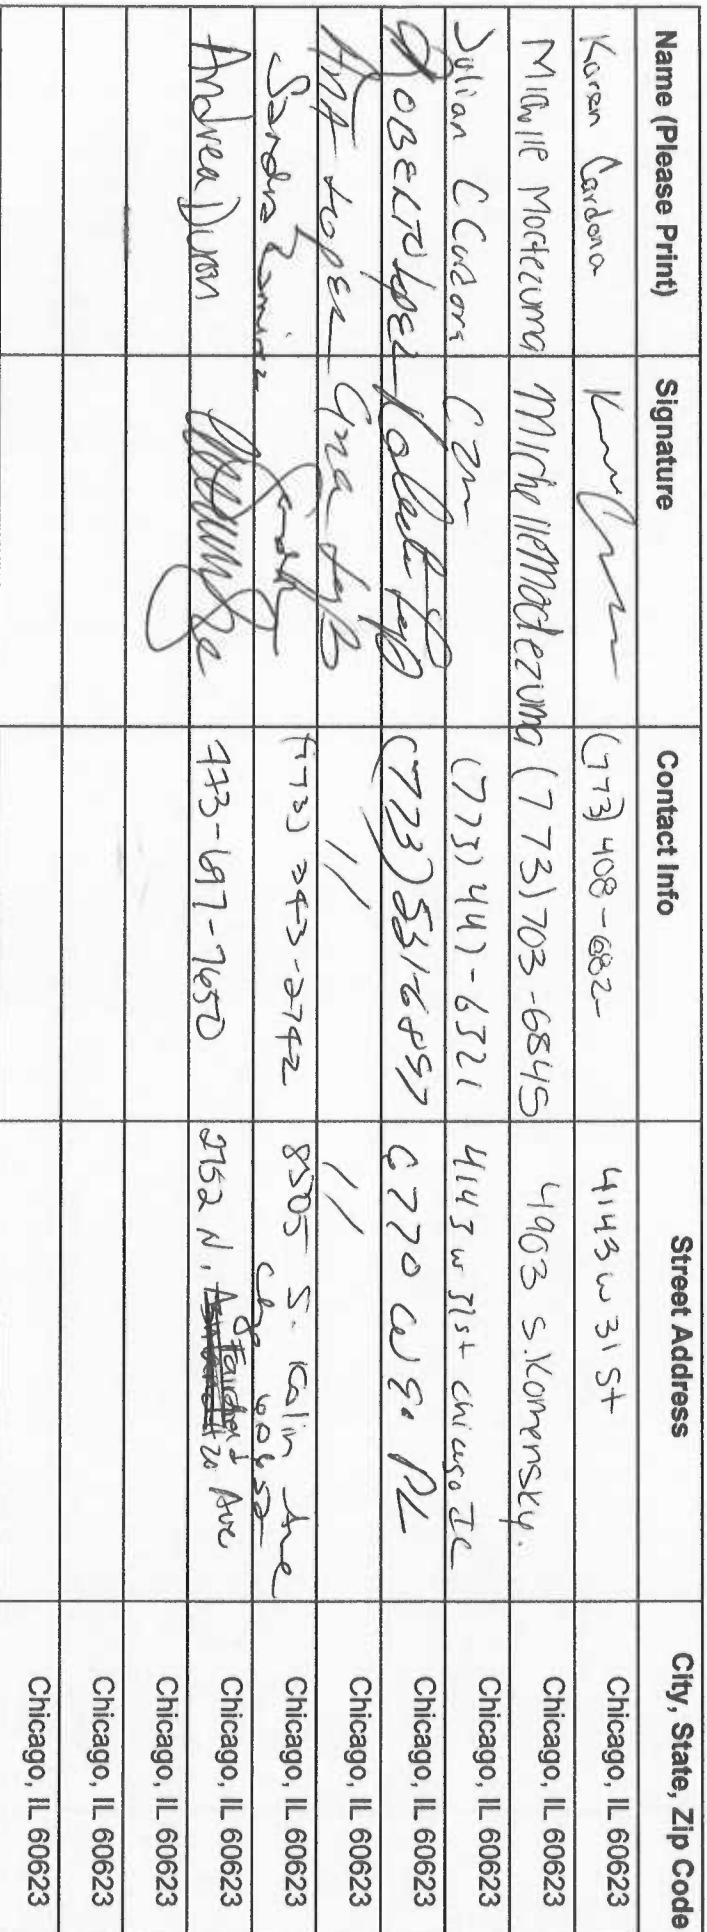 Name (Please Print) Signature Contact Info Street Address City, State, Zip Code
Karen Cardona (773) 408-682- 4143 w 31 St Chicago, IL 60623
Michelle Moctezuma Michelle Moctezuma (773) 703-6845 4903 S. Komensky. Chicago, IL 60623
Julian C Cardona (773) 447-6321 4143 w 31st Chicago IL Chicago, IL 60623
ROBERTO Lopez (773) 5316857 6770 Chicago, IL 60623
ANA Lopez Ana // // Chicago, IL 60623
Sandra Ramirez (773) 343-2742 8505 S. Kolin Ave Chicago, IL 60623
Chgo 60652
Andrea Duron 773-697-7650 2152 N. Ave Chicago, IL 60623
Chicago, IL 60623
Chicago, IL 60623
Chicago, IL 60623